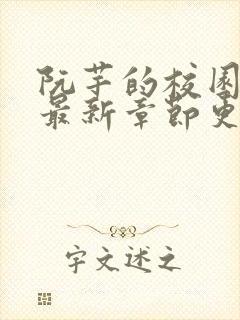 阮芋的校园
最新章節更
字文述之